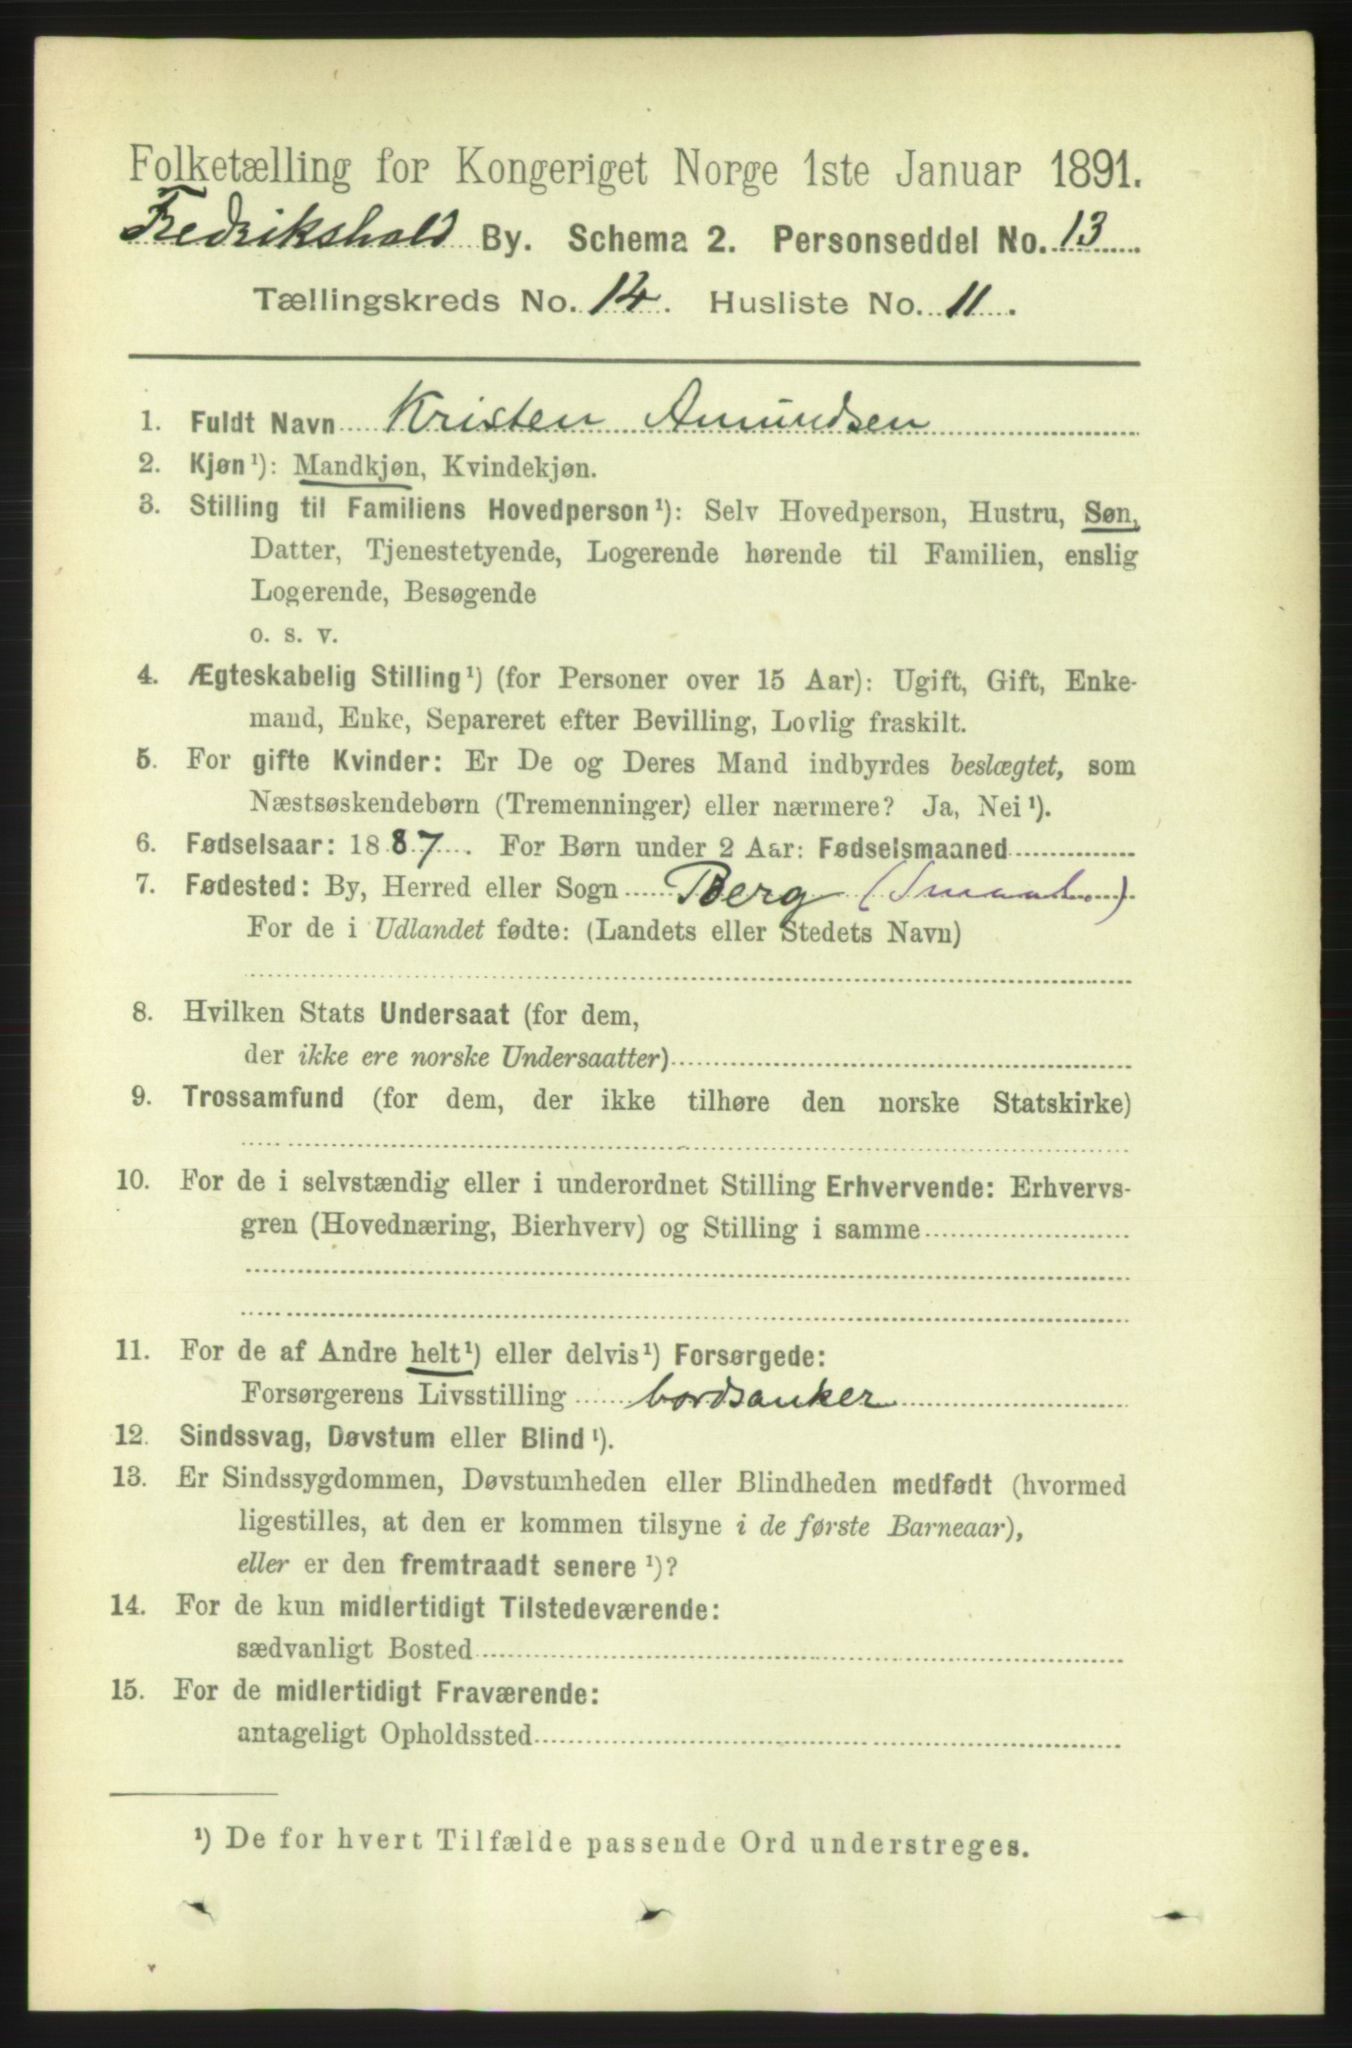 Folketælling for Kongeriget Norge 1ste Januar 1891.
Fredrikshald By. Schema 2. Personseddel No. 13
Tællingskreds No. 14. Husliste No. 11.
1. Fuldt Navn Kristen Amundsen
2. Kjøn ¹): Mandkjøn, Kvindekjøn.
3. Stilling til Familiens Hovedperson ¹): Selv Hovedperson, Hustru, Søn,
Datter, Tjenestetyende, Logerende hørende til Familien, enslig
Logerende, Besøgende
o. s. v.
4. Ægteskabelig Stilling ¹) (for Personer over 15 Aar): Ugift, Gift, Enke-
mand, Enke, Separeret efter Bevilling, Lovlig fraskilt.
5. For gifte Kvinder: Er De og Deres Mand indbyrdes beslægtet, som
Næstsøskendebørn (Tremenninger) eller nærmere? Ja, Nei ¹).
6. Fødselsaar: 1887. For Børn under 2 Aar: Fødselsmaaned
7. Fødested: By, Herred eller Sogn Berg (Smaal.)
For de i Udlandet fødte: (Landets eller Stedets Navn)
8. Hvilken Stats Undersaat (for dem,
der ikke ere norske Undersaatter)
9. Trossamfund (for dem, der ikke tilhøre den norske Statskirke)
10. For de i selvstændig eller i underordnet Stilling Erhvervende: Erhvervs-
gren (Hovednæring, Bierhverv) og Stilling i samme
11. For de af Andre helt ¹) eller delvis ¹) Forsørgede:
Forsørgerens Livsstilling bordsanker
12. Sindssvag, Døvstum eller Blind ¹).
13. Er Sindssygdommen, Døvstumheden eller Blindheden medfødt (hvormed
ligestilles, at den er kommen tilsyne i de første Barneaar),
eller er den fremtraadt senere ¹)?
14. For de kun midlertidigt Tilstedeværende:
sædvanligt Bosted
15. For de midlertidigt Fraværende:
antageligt Opholdssted
¹) De for hvert Tilfælde passende Ord understreges.